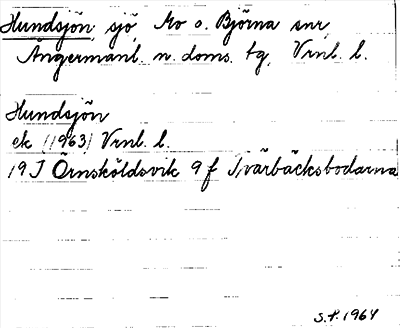 Hundsjön, sjö, Mo o. Björna snr,
Ångermanl. n. doms. tg, Vrnl. l.
Hundsjön
ek (1963) Vrnl. l.
19 J Örnsköldsvik 9 f Tvärbäcksbodarna
S.F. 1964